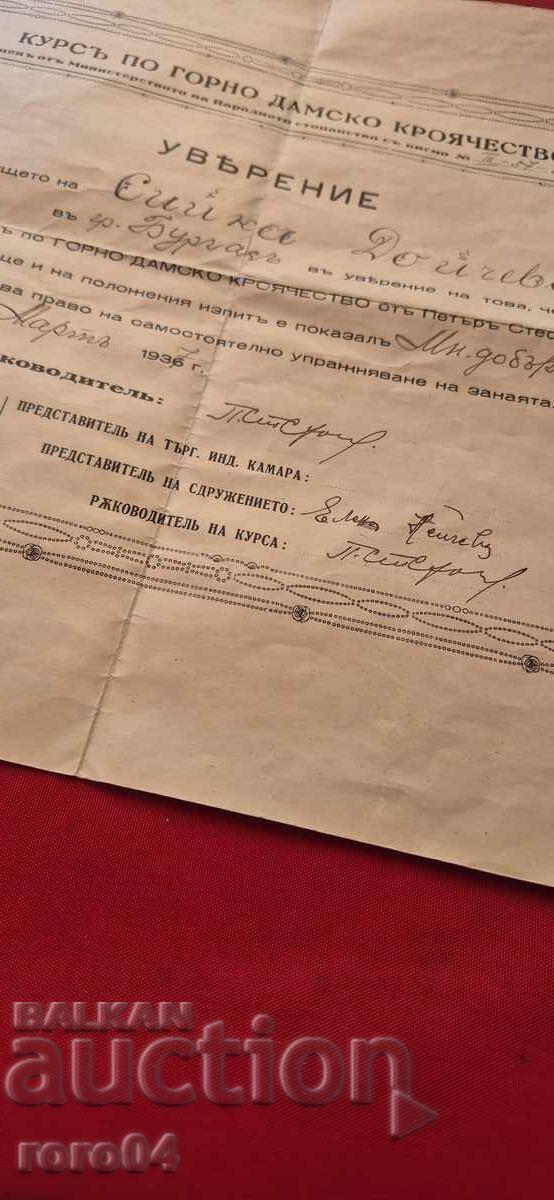 КУРСЪ ПО ГОРНО ДАМСКО КРОЯЧЕСТВО
отъ Министерството на Народното стопанство съ писмо №
УВѢРЕНИЕ
на Сийка Дойчева
въ гр. Бургасъ въ уверение на това, че
ПО ГОРНО ДАМСКО КРОЯЧЕСТВО отъ Петъръ
и на положения изпитъ е показалъ Мн. добъръ
право на самостоятелно упражняване на занаята.
Мартъ 1937 г.
КОВОДИТЕЛЬ:
ПРЕДСТАВИТЕЛ НА ТЪРГ. ИНД. КАМАРА:
ПРЕДСТАВИТЕЛ НА СДРУЖЕНИЕТО:
РѪКОВОДИТЕЛ НА КУРСА:
BALKAN
auction
roro04